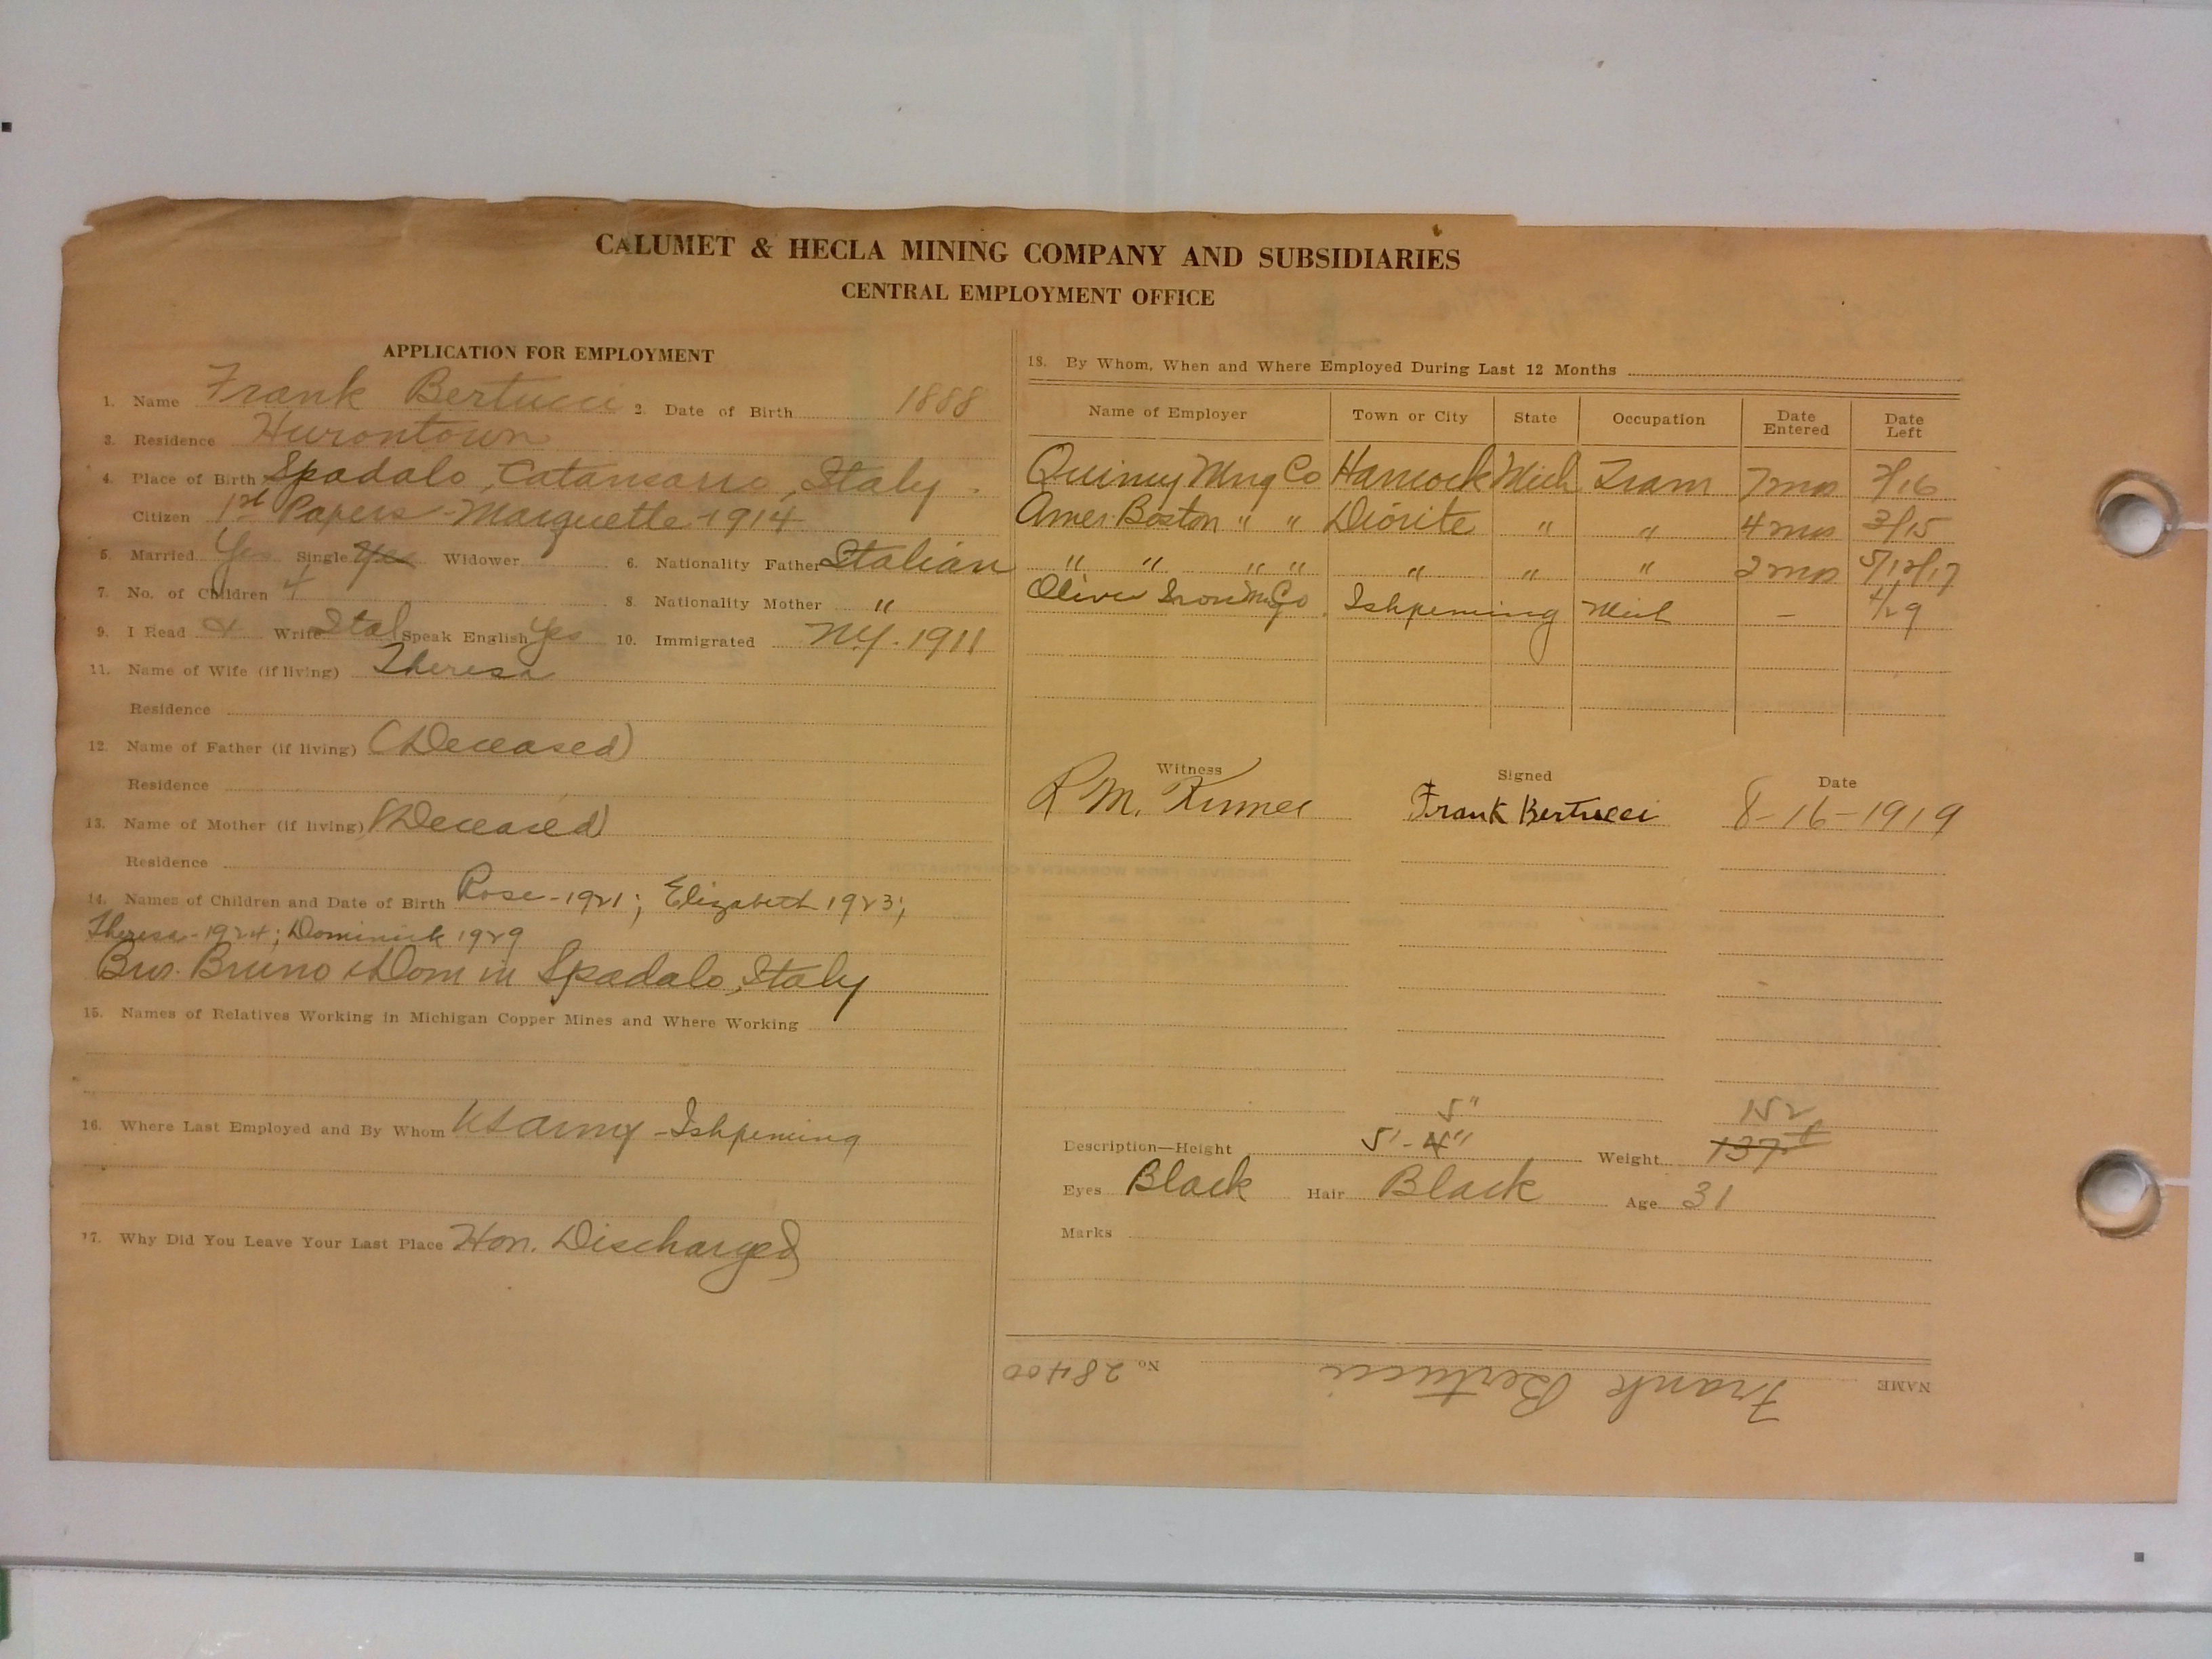 CALUMET & HECLA MINING COMPANY AND SUBSIDIARIES
CENTRAL EMPLOYMENT OFFICE
APPLICATION FOR EMPLOYMENT
1. Name Frank Bertucci 2. Date of Birth 1888
3. Residence Hurontown
4. Place of Birth Spadalo, Catansarro, Italy.
Citizen 1st Papers - Marquette - 1914
5. Married Yes Single Yes Widower 6. Nationality Father Italian
7. No. of Children 4 8. Nationality Mother "
9. I Read & Write Ital Speak English Yes 10. Immigrated N.Y. 1911
11. Name of Wife (if living) Theresa
Residence
12. Name of Father (if living) (Deceased)
Residence
13. Name of Mother (if living) (Deceased)
Residence
14. Names of Children and Date of Birth Rose - 1921; Elizabeth 1923;
Theresa - 1924; Dominick 1929
Bros. Bruno & Dom in Spadalo, Italy
15. Names of Relatives Working in Michigan Copper Mines and Where Working
16. Where Last Employed and By Whom US Army - Ishpeming
17. Why Did You Leave Your Last Place Hon. Discharged
18. By Whom, When and Where Employed During Last 12 Months
Name of Employer Town or City State Occupation Date Entered Date Left
Quincy Mng Co Hancock Mich Tram 7 mos 7/16
Amer. Boston " " Diorite " " 4 mos 3/15
" " " " " " " 2 mos 5/12/17
Oliver Iron Mng Co. Ishpeming Mich - 4/29
Witness Signed Date
R M. Frank Bertucci 8-16-1919
5" 152
Description—Height 5'-4" Weight 137#
Eyes Black Hair Black Age 31
Marks
NAME Frank Bertucci No. 28400